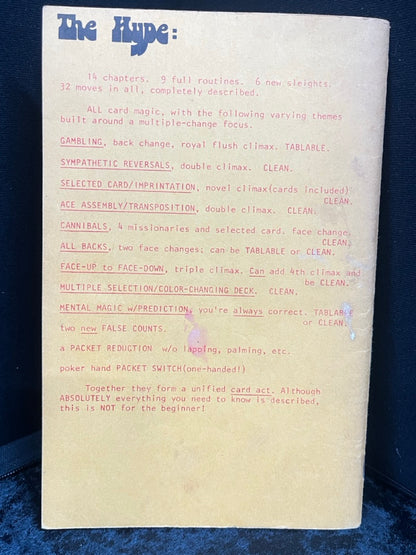 The Hype:
14 chapters. 9 full routines. 6 new sleights.
32 moves in all, completely described.
ALL card magic, with the following varying themes
built around a multiple-change focus.
GAMBLING, back change, royal flush climax. TABLABLE.
SYMPATHETIC REVERSALS, double climax. CLEAN.
SELECTED CARD/IMPRINTATION, novel climax(cards included)
CLEAN.
ACE ASSEMBLY/TRANSPOSITION, double climax. CLEAN.
CANNIBALS, 4 missionaries and selected card. face change.
CLEAN.
ALL BACKS, two face changes; can be TABLABLE or CLEAN.
FACE-UP to FACE-DOWN, triple climax. Can add 4th climax and
be CLEAN.
MULTIPLE SELECTION/COLOR-CHANGING DECK. CLEAN.
MENTAL MAGIC W/PREDICTION, you're always correct. TABLABLE
or CLEAN.
two new FALSE COUNTS.
a PACKET REDUCTION w/o lapping, palming, etc.
poker hand PACKET SWITCH(one-handed!)
Together they form a unified card act. Although
ABSOLUTELY everything you need to know is described,
this is NOT for the beginner!